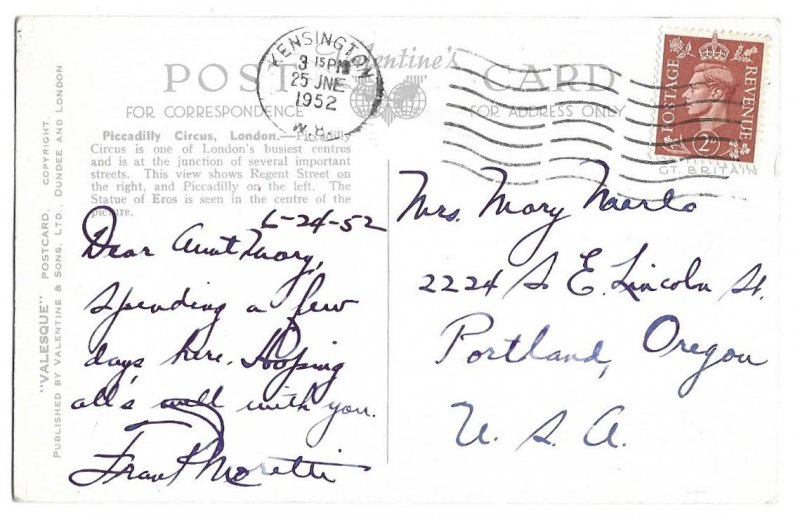 "VALESQUE" POSTCARD. COPYRIGHT.
PUBLISHED BY VALENTINE & SONS, LTD., DUNDEE AND LONDON
Valentine's
POST CARD
FOR CORRESPONDENCE
FOR ADDRESS ONLY
KENSINGTON
3 15PM
25 JNE
1952
POSTAGE REVENUE
2D
GT. BRITAIN
Piccadilly Circus, London.—Piccadilly
Circus is one of London's busiest centres
and is at the junction of several important
streets. This view shows Regent Street on
the right, and Piccadilly on the left. The
Statue of Eros is seen in the centre of the
picture.
6-24-52
Dear Aunt Mary,
Spending a few
days here. Hoping
all's well with you.
Frank Moretti
Mrs. Mary
2224 S. E. Lincoln St.
Portland, Oregon
U. S. A.